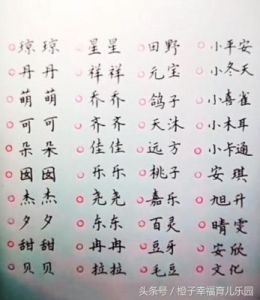 琼琼 星星 田野 小平安
丹丹 祥祥 元宝 小冬天
萌萌 乔乔 鸽子 小喜雀
可可 齐齐 天沐 小木耳
朵朵 佳佳 远方 小卡通
囡囡 乐乐 桃子 安琪
杰杰 尧尧 嘉乐 旭升
夕夕 东东 百灵 晴雯
甜甜 冉冉 豆牙 安欣
贝贝 拉拉 毛豆 文化
头条号 / 橙子幸福育儿乐园